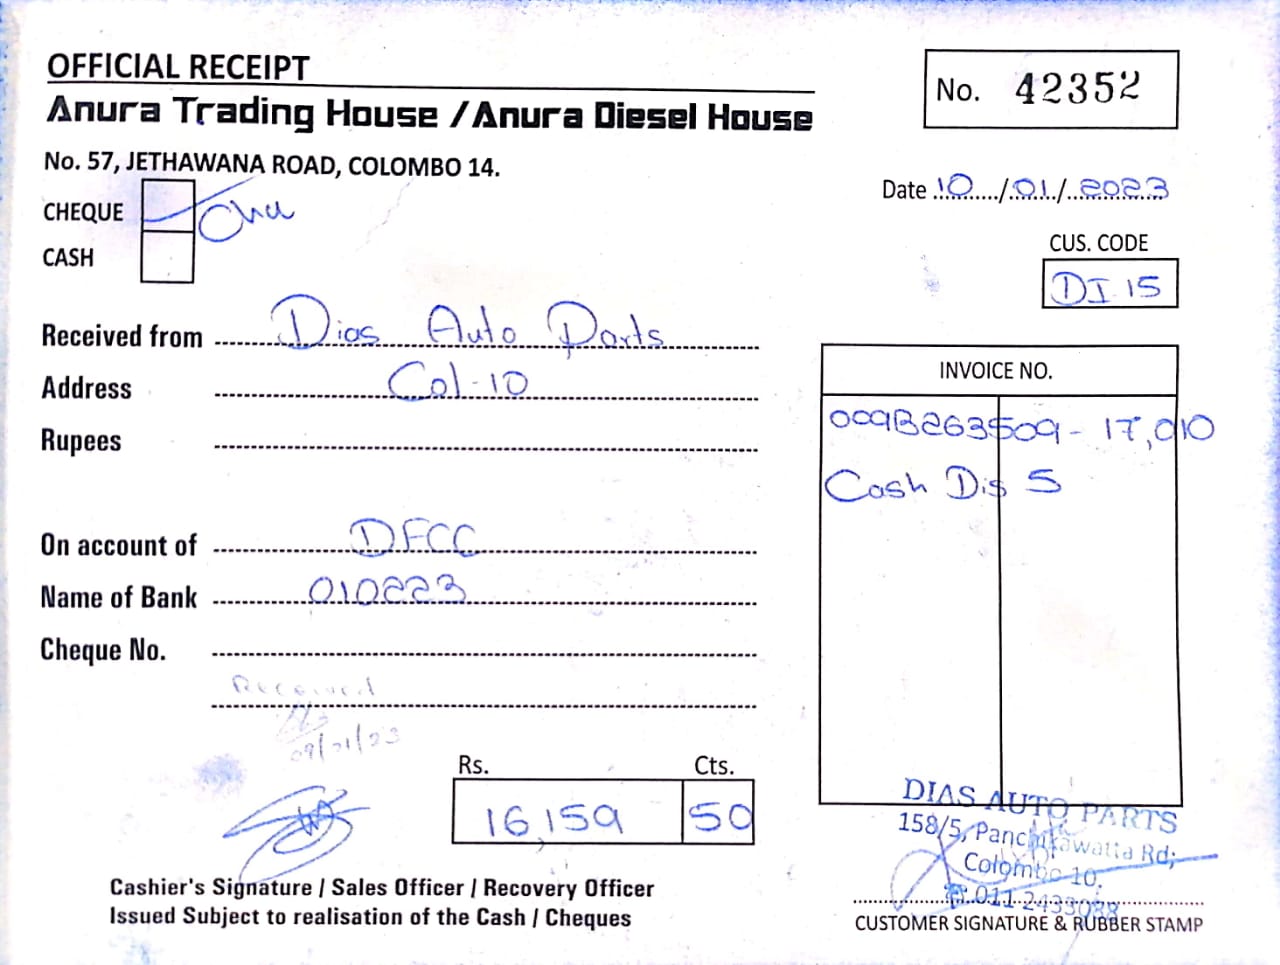 OFFICIAL RECEIPT
No. 42352
Anura Trading House / Anura Diesel House
No. 57, JETHAWANA ROAD, COLOMBO 14.
Date 10/01/2023
CHEQUE
CASH
CUS. CODE
DI 15
Received from Dias Auto Parts
Address Col-10
Rupees
INVOICE NO.
009B263509 - 17,010
Cash Dis 5
On account of DFCC
Name of Bank 010223
Cheque No.
Received
09/01/23
Rs. Cts.
16,159 50
DIAS AUTO PARTS
158/5, Panchikawatta Rd;
Colombo 10.
☎:011 2433088
Cashier's Signature / Sales Officer / Recovery Officer
Issued Subject to realisation of the Cash / Cheques
CUSTOMER SIGNATURE & RUBBER STAMP